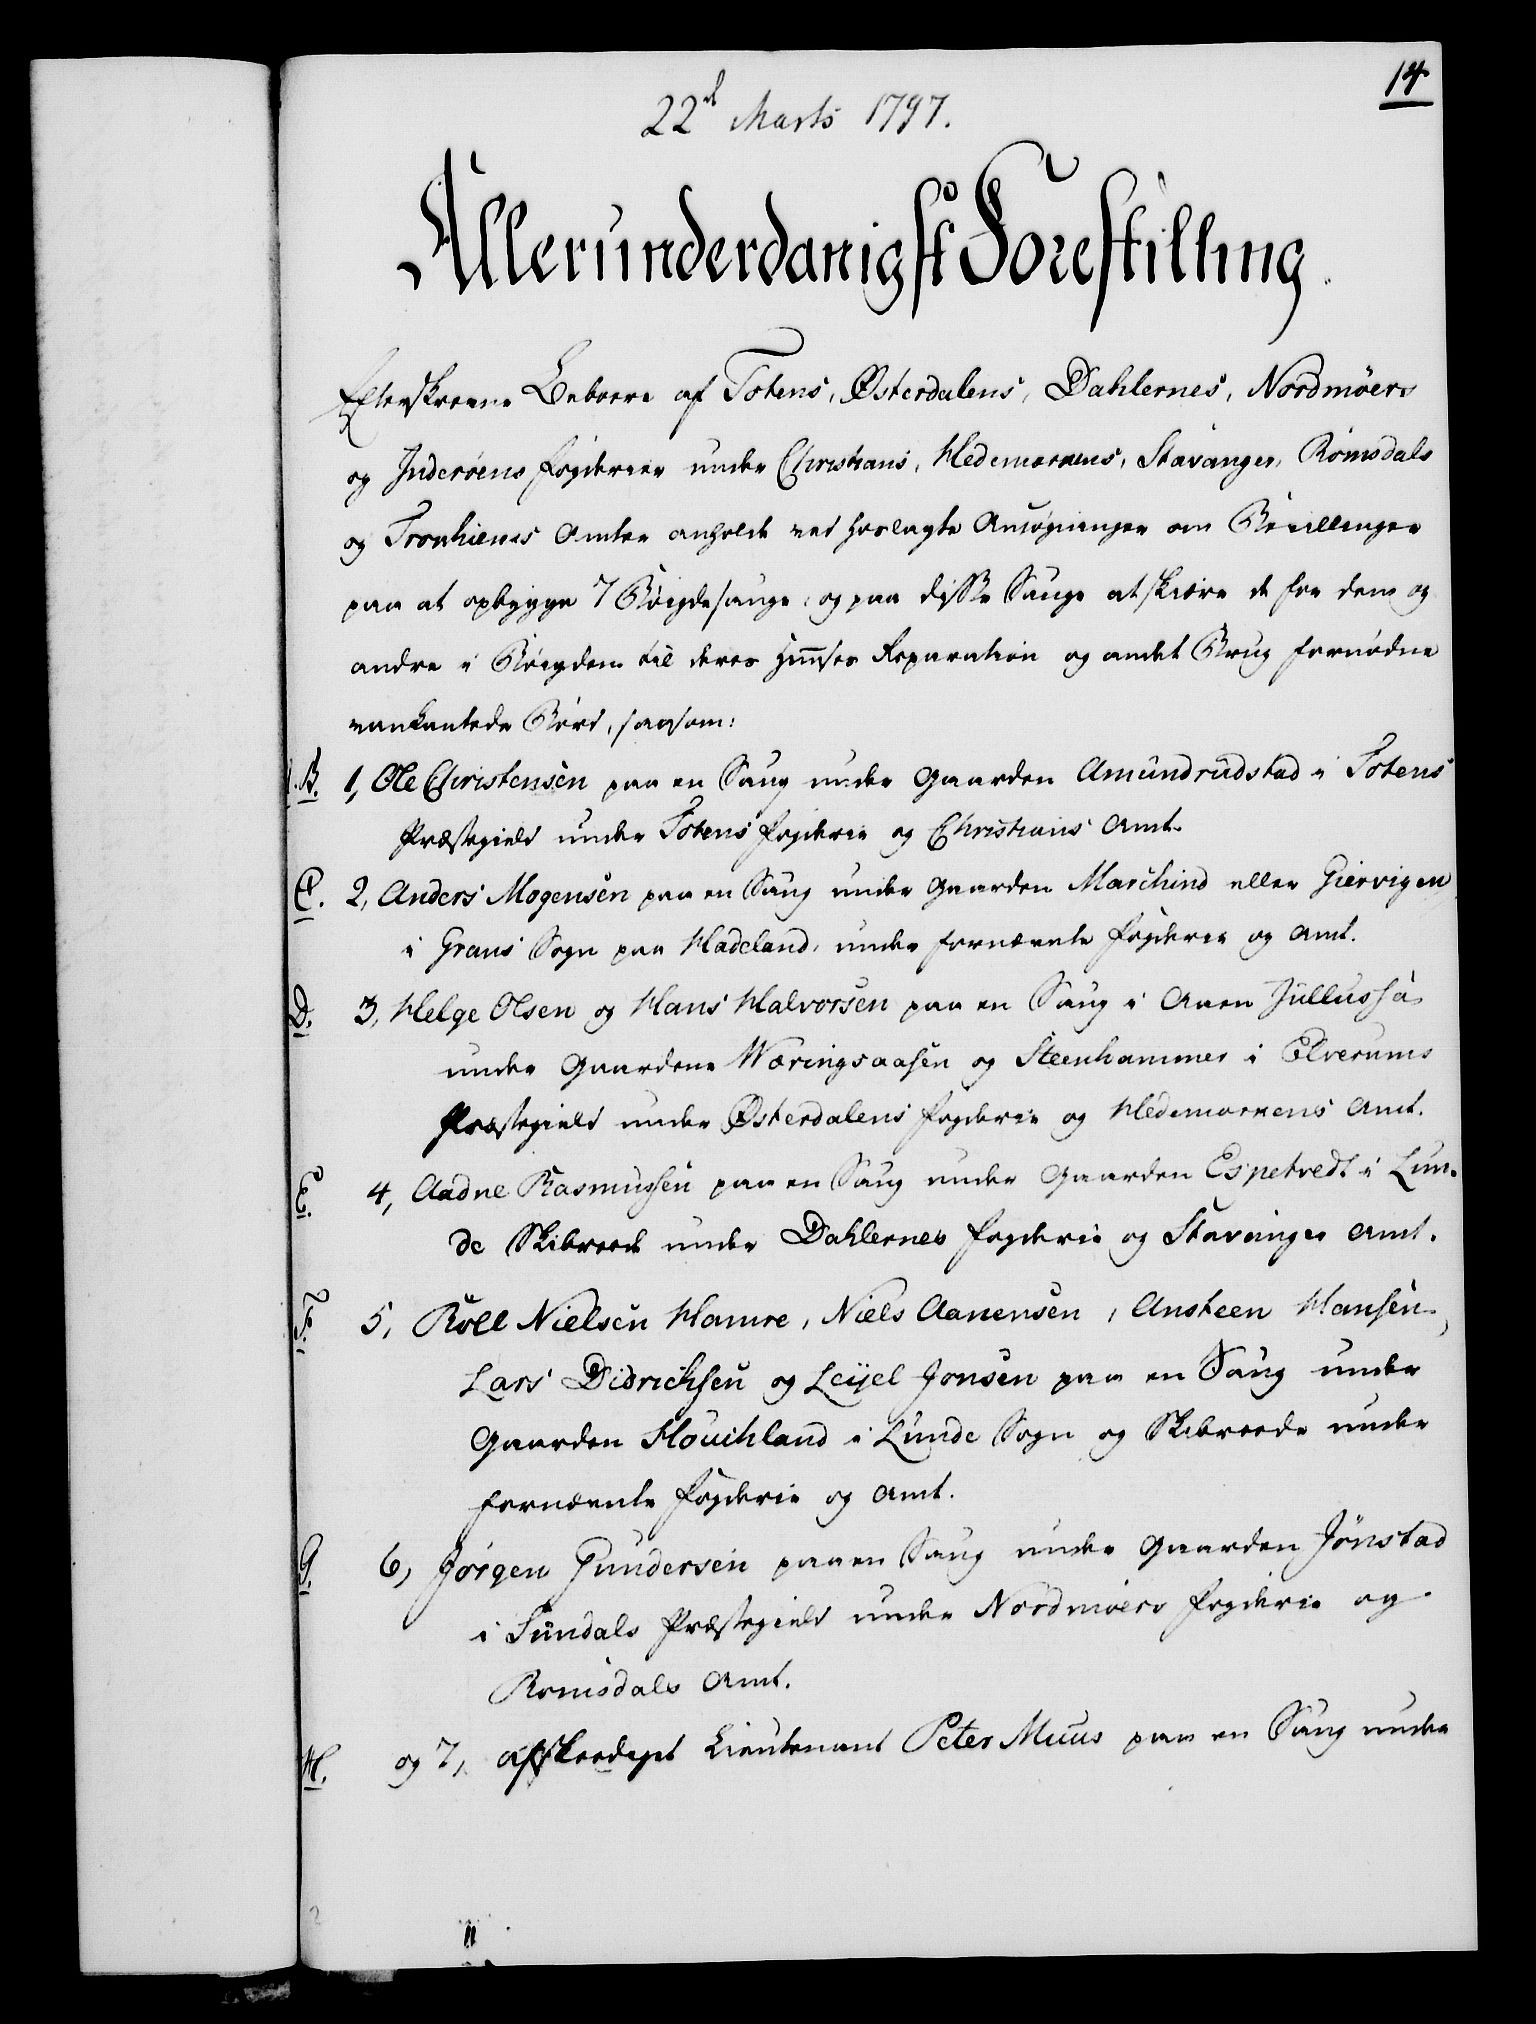 14
22d Marts 1797.
Allerunderdanigst Forestilling.
Efterskrevne Beboere af Totens, Østerdalens, Dahlernes, Nordmøers
og Inderøens Fogderier under Christians, Hedemarkens, Stavanger, Romsdals
og Tronhiems Amter anholde ved hoslagte Ansøgninger om Bevillinger
paa at opbygge 7 Bøigdesauge, og paa disse Sauge at skiære de for dem og
andre i Bøigden til deres Huuses Reparation og andet Brug fornødne
vankantede Bord, saasom:
B. 1, Ole Christensen paa en Saug under Gaarden Amundrudstad i Totens
Præstegield under Totens Fogderie og Christians Amt.
C. 2, Anders Mogensen paa en Saug under Gaarden Marchind eller Giervigen
i Grans Sogn paa Hadeland, under fornævnte Fogderie og Amt.
D. 3, Helge Olsen og Hans Halvorsen paa en Saug i Aaen Jullusaa
under Gaardene Wæringsaasen og Steenhammer i Elverums
Præstegield under Østerdalens Fogderie og Hedemarkens Amt.
E. 4, Aadne Rasmussen paa en Saug under Gaarden Espetvedt i Lun-
de Skibreede under Dahlernes Fogderie og Stavanger Amt.
F. 5, Roll Nielsen Hamre, Niels Aanensen, Ansteen Hansen,
Lars Didrichsen og Leijel Jonsen paa en Saug under
Gaarden Houchland i Lunde Sogn og Skibreede under
fornævnte Fogderie og Amt.
G. 6, Jørgen Gundersen paa en Saug under Gaarden Jønstad
i Sundals Præstegield under Nordmøers Fogderie og
Romsdals Amt.
H. og 7, afskeediget Lieutenant Peter Muus paa en Saug under